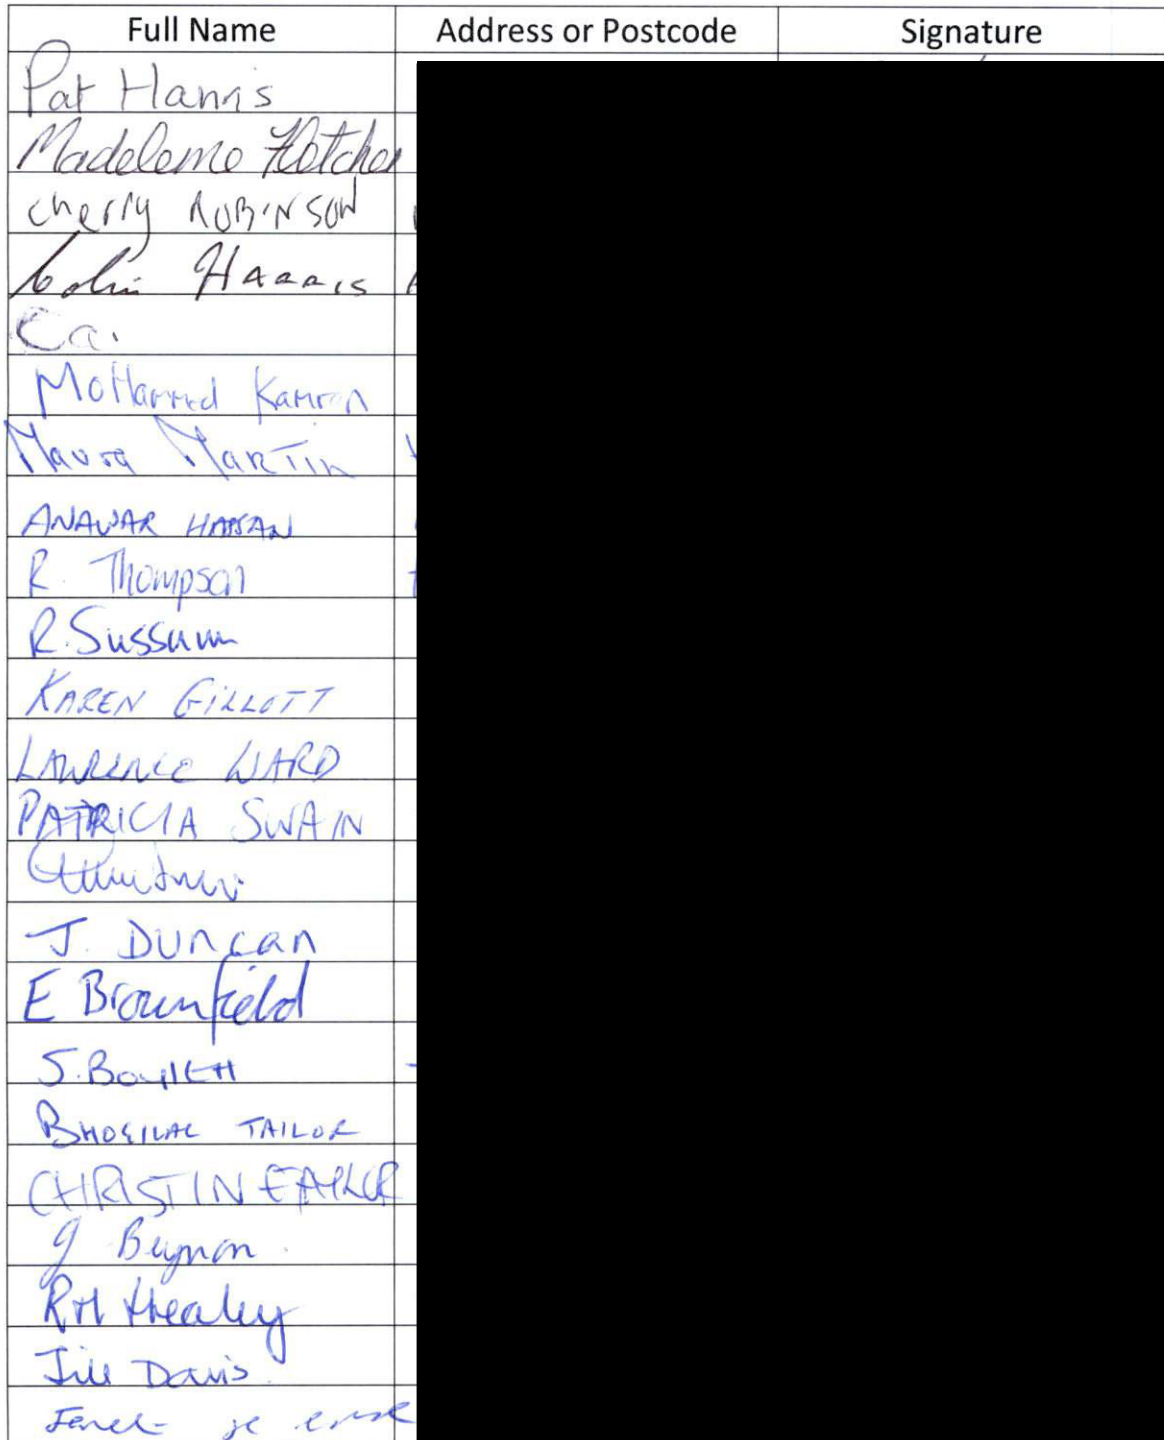 Full Name Address or Postcode Signature
Pat Harris
Madeleine Fletcher
Cherry ROBINSON
Colin Harris
Ca.
Mohammed Kamran
Maura Martin
ANAWAR HASSAN
R. Thompson
R. Sussum
KAREN GILLOTT
LAWRENCE WARD
PATRICIA SWAIN
J. Duncan
E Brownfield
BHOGILAL TAILOR
CHRISTINE
J Beynon
RM Healey
Jill Davis